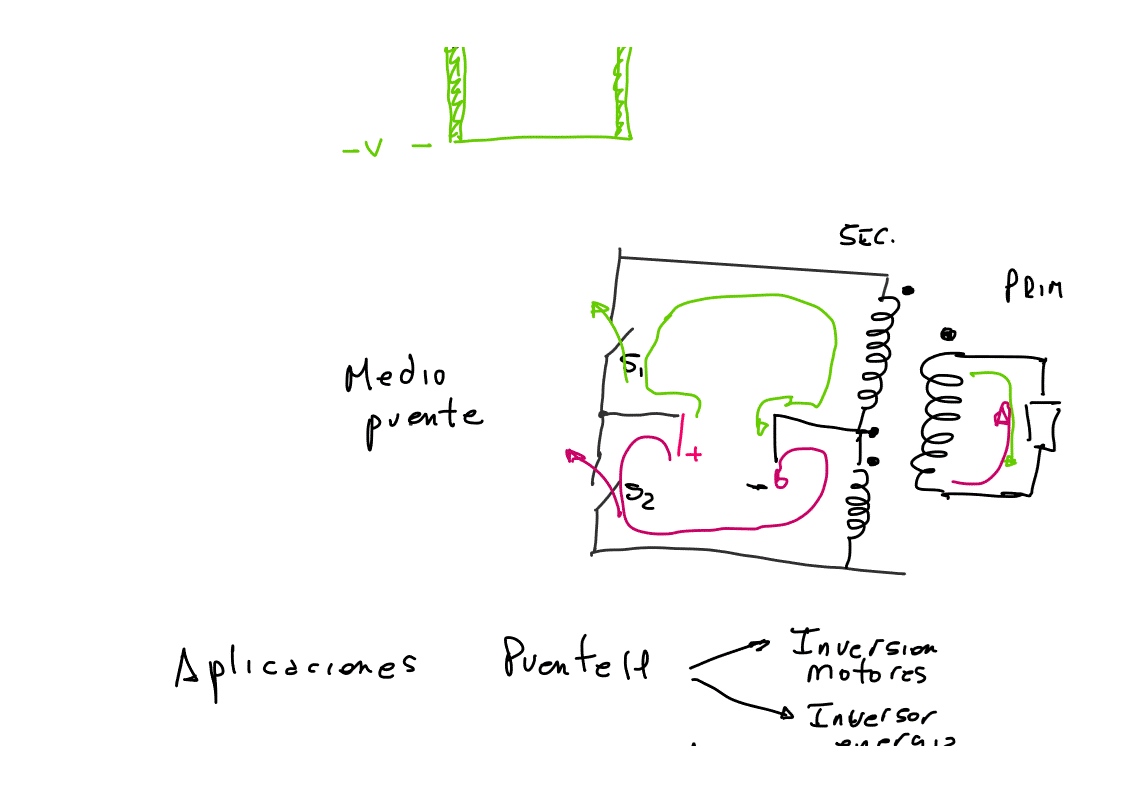 -V -
SEC.
PRIM
S1
Medio
puente
+
-
S2
Aplicaciones Puente H
Inversion
motores
Inversor
energia